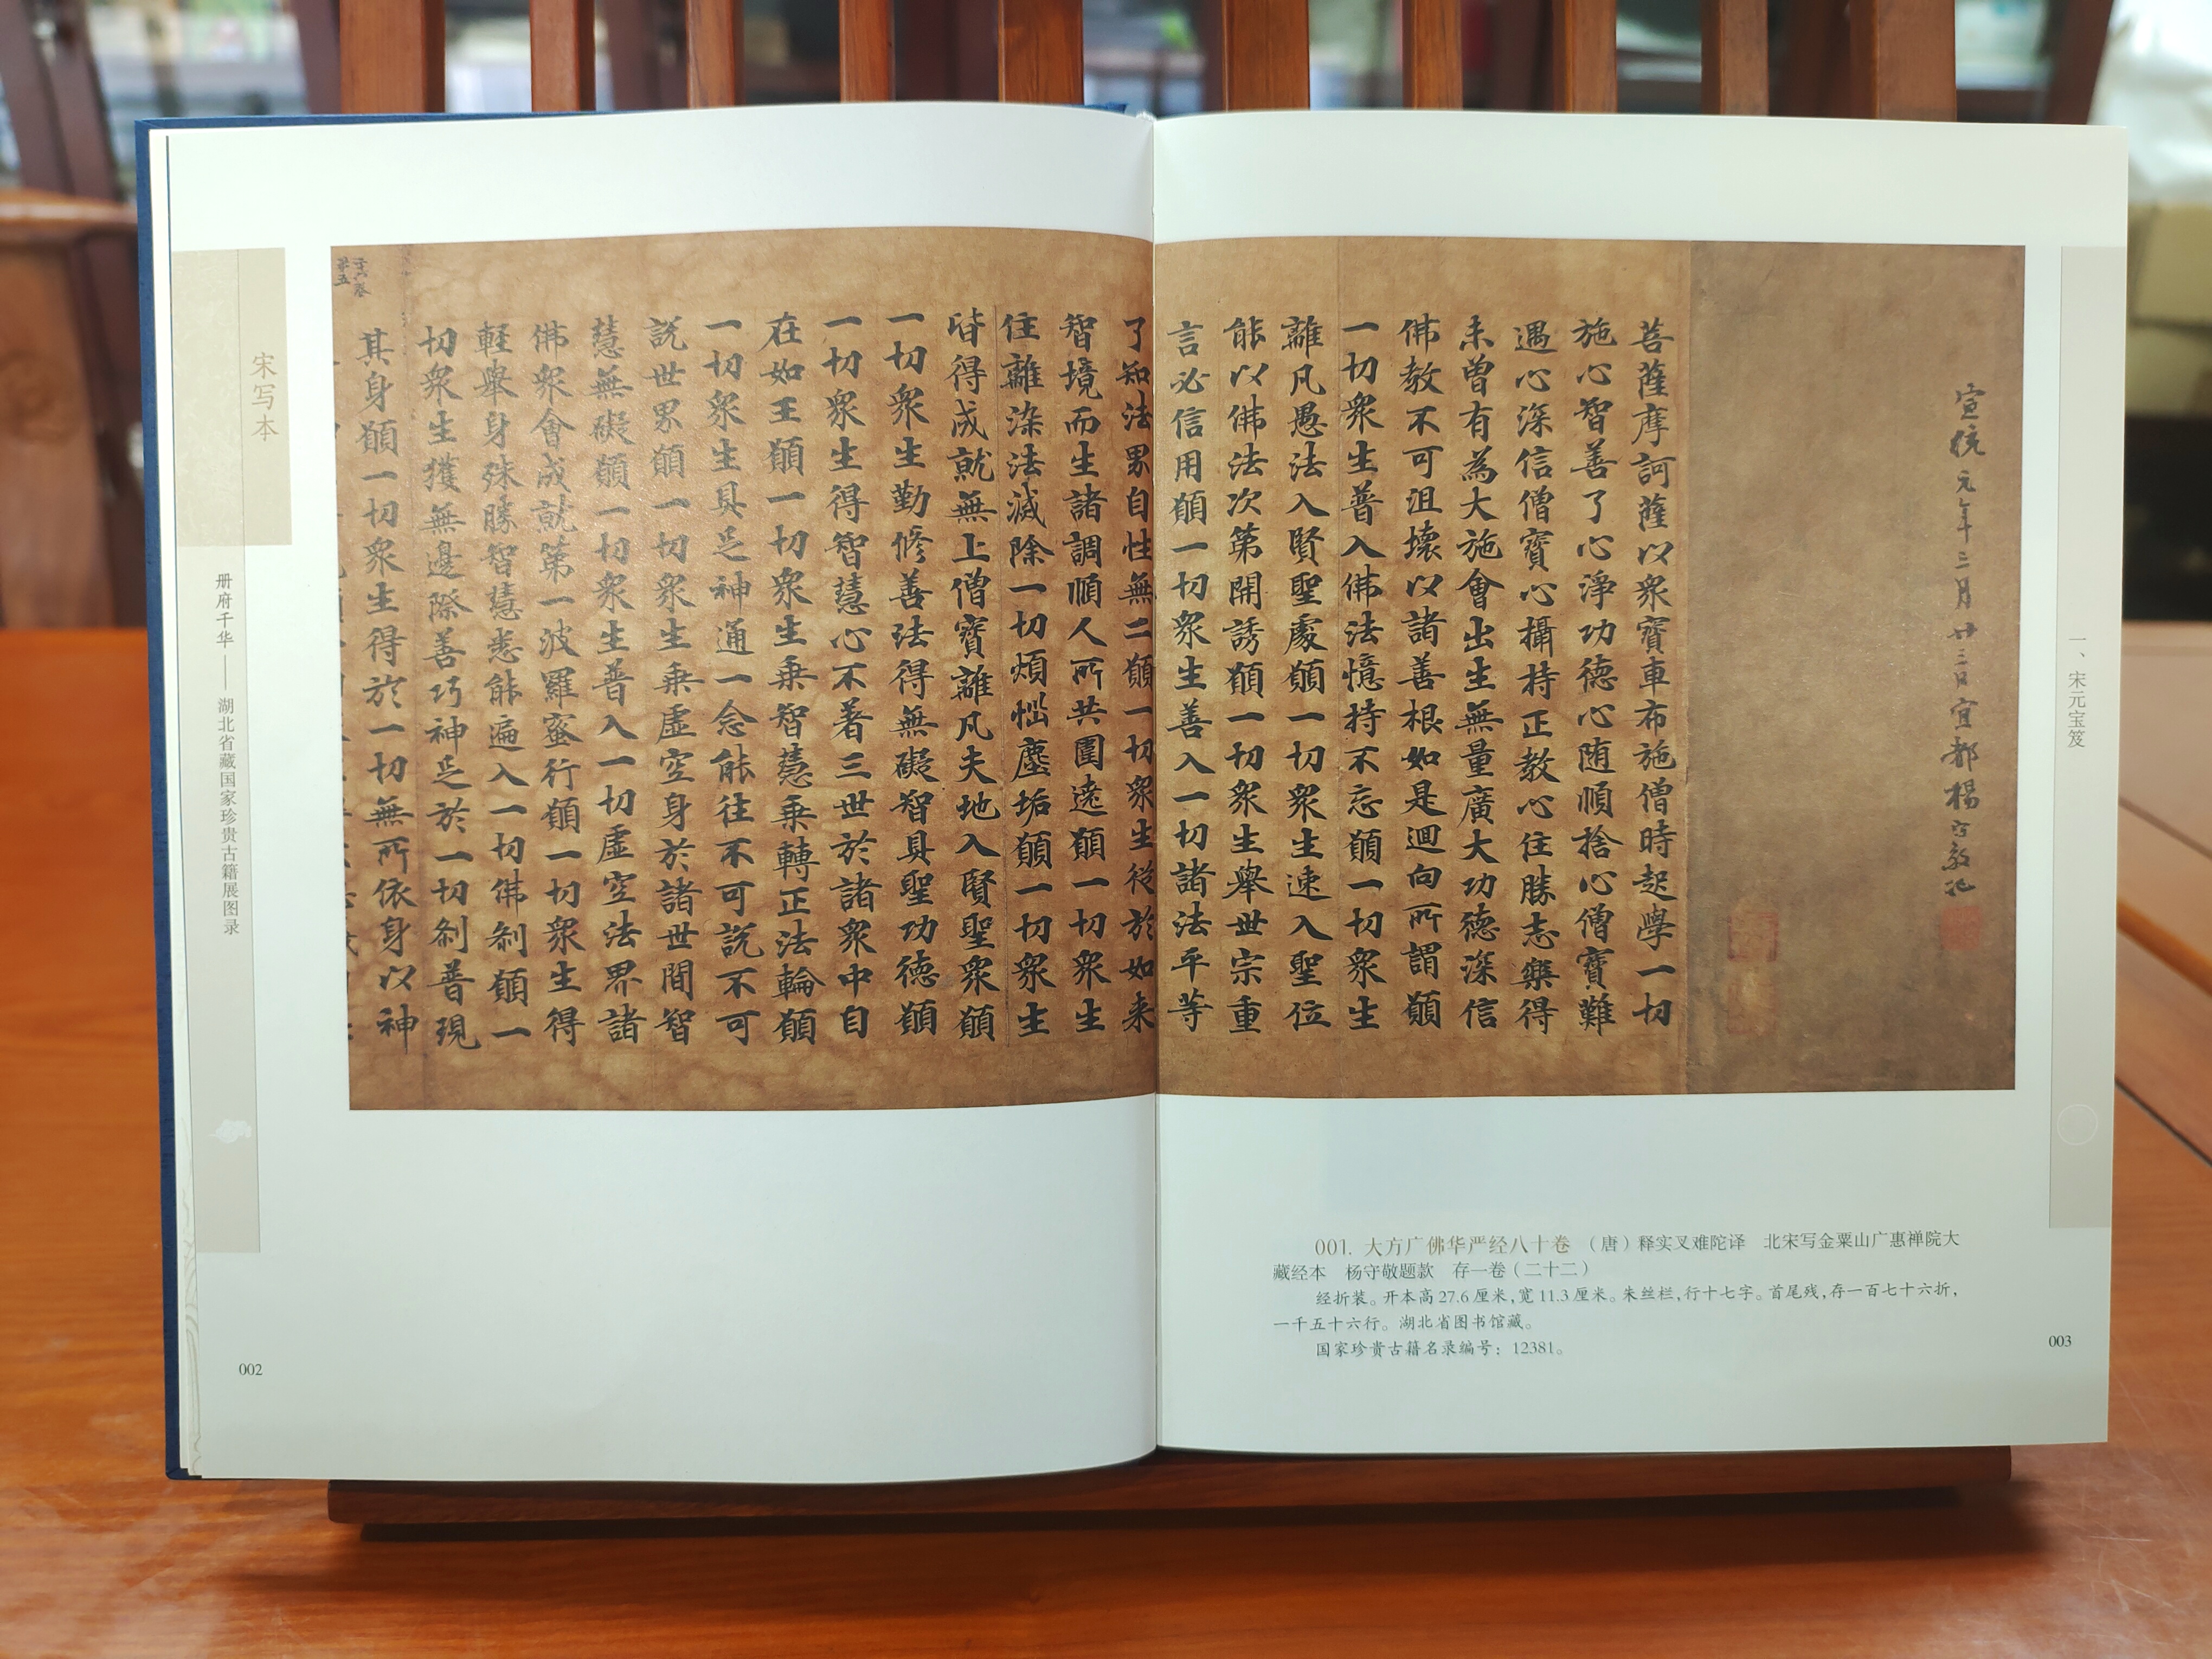 一、宋元宝笈
宣統元年二月廿三日宜都楊守敬記
菩薩摩訶薩以衆寶車布施僧時起學一切
施心智善了心淨功德心随順捨心僧寶難
遇心深信僧寶心攝持正教心住勝志樂得
未曾有為大施會出生無量廣大功德深信
佛教不可沮壞以諸善根如是迴向所謂願
一切衆生普入佛法憶持不忘願一切衆生
離凡愚法入賢聖處願一切衆生速入聖位
能以佛法次第開誘願一切衆生舉世宗重
言必信用願一切衆生善入一切諸法平等
了知法界自性無二願一切衆生從於如来
智境而生諸調順人所共圍遶願一切衆生
住離染法滅除一切煩惱塵垢願一切衆生
皆得成就無上僧寶離凡夫地入賢聖衆願
一切衆生勤修善法得無礙智具聖功德願
一切衆生得智慧心不著三世於諸衆中自
在如王願一切衆生乗智慧乗轉正法輪願
一切衆生具足神通一念能往不可説不可
説世界願一切衆生乗虚空身於諸世間智
慧無礙願一切衆生普入一切虚空法界諸
佛衆會成就第一波羅蜜行願一切衆生得
軽舉身殊勝智慧悉能遍入一切佛刹願一
切衆生獲無邊際善巧神足於一切刹普現
其身願一切衆生得於一切無所依身以神
宋写本
册府千华——湖北省藏国家珍贵古籍展图录
002
001. 大方广佛华严经八十卷 （唐）释实叉难陀译 北宋写金粟山广惠禅院大
藏经本 杨守敬题款 存一卷（二十二）
经折装。开本高27.6厘米，宽11.3厘米。朱丝栏，行十七字。首尾残，存一百七十六折，
一千五十六行。湖北省图书馆藏。
国家珍贵古籍名录编号：12381。
003